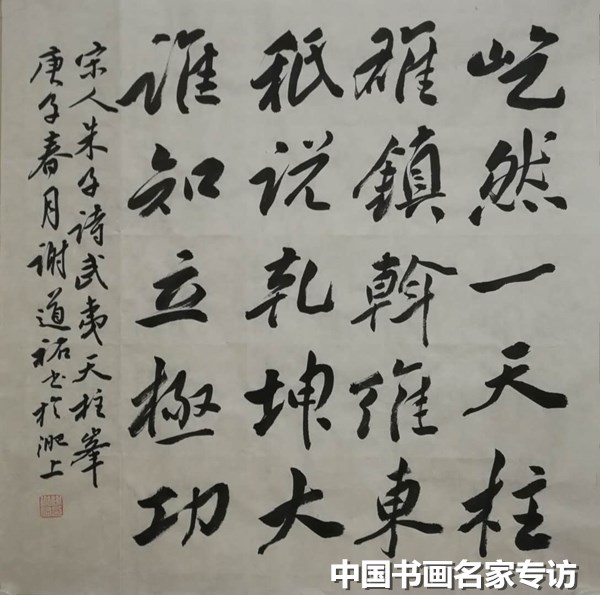 屹然一天柱
雄鎮斡維東
秖说乾坤大
誰知立極功
宋人朱子诗武夷天柱峯
庚子春月谢道祐书於淝上
中国书画名家专访